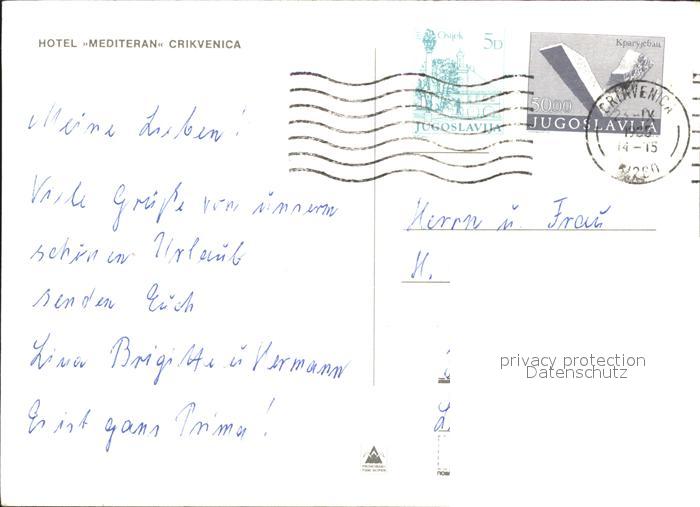 HOTEL »MEDITERAN« CRIKVENICA
Meine Lieben!
Viele Grüße von unserm
schönen Urlaub
senden Euch
Lina Brigitte u Hermann
Es ist ganz Prima!
Osijek 5D
JUGOSLAVIJA
Крагујевац
50.00
JUGOSLAVIJA
CRIKVENICA
14-15
51260
Herrn u. Frau
H.
privacy protection
Datenschutz